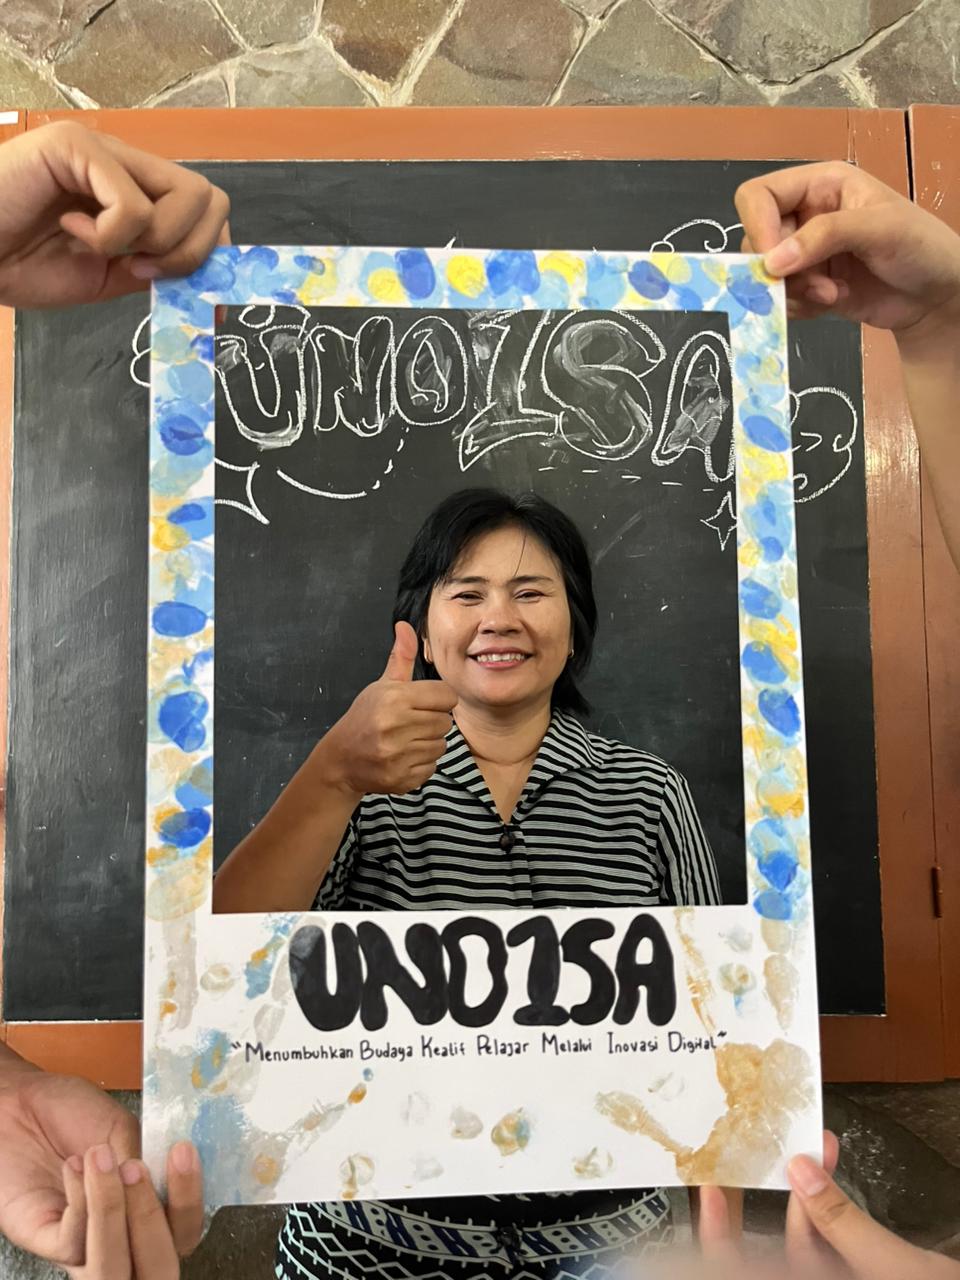 UNO1SA
UNO1SA
"Menumbuhkan Budaya Keatif Pelajar Melalui Inovasi Digital"